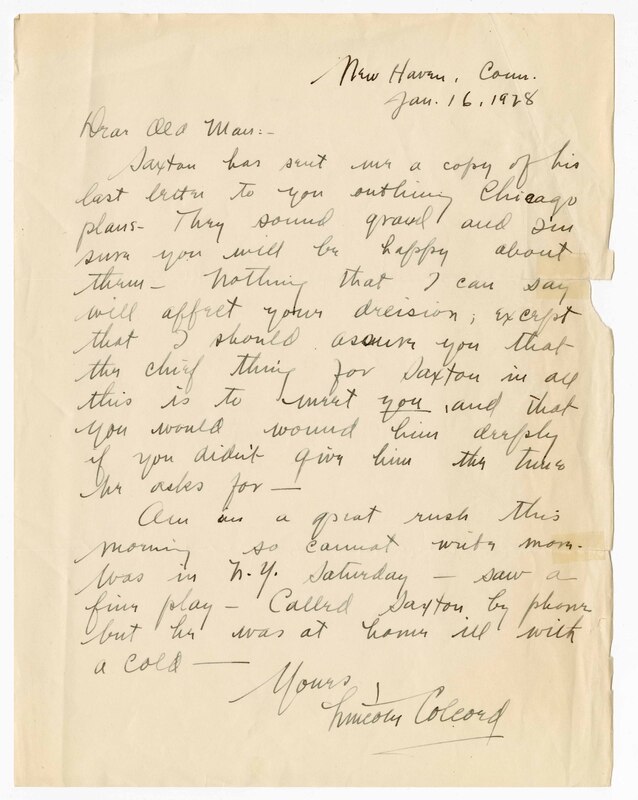 New Haven, Conn.
Jan. 16, 1928
Dear Old Man:-
Saxton has sent me a copy of his
last letter to you outlining Chicago
plans- They sound grand and I'm
sure you will be happy about
them- Nothing that I can say
will affect your decision; except
that I should assure you that
the chief thing for Saxton in all
this is to meet you, and that
you would wound him deeply
if you didn't give him the time
he asks for —
Am in a great rush this
morning so cannot write more.
Was in N.Y. Saturday — saw a
fine play - Called Saxton by phone
but he was at home ill with
a cold —
Yours
Lincoln Colcord